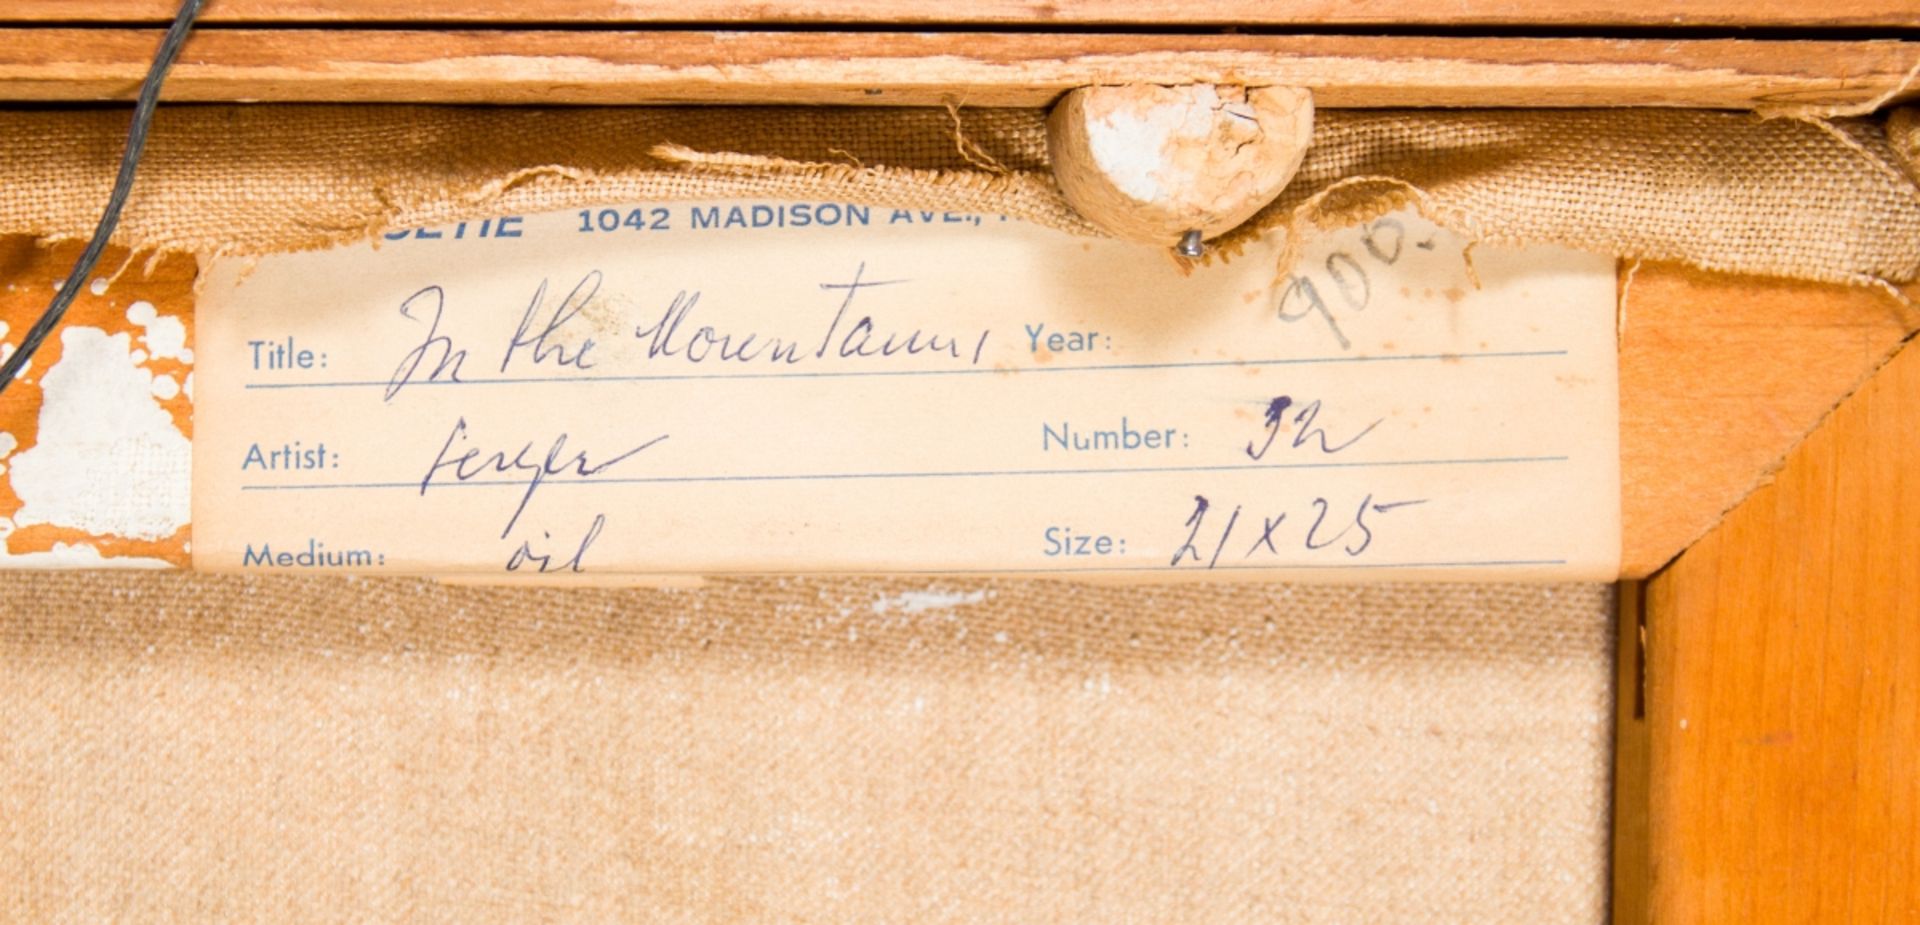 1042 MADISON AVE.,
900.
Title: In the Mountains Year:
Artist: Number: 32
Medium: oil Size: 21 x 25